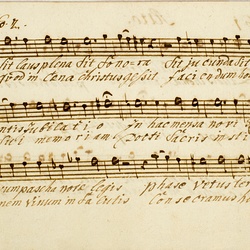 Sit laus plena sit sono=ra Sit jucunda sit
quod in Cæna Christus gessit faciendum ho
ntis jubilatio In hac mensa novi
sui memoriam Docti Sacris insti
um pascha novæ legis phase vetus te
nem vinum in salutis Consecramus ho